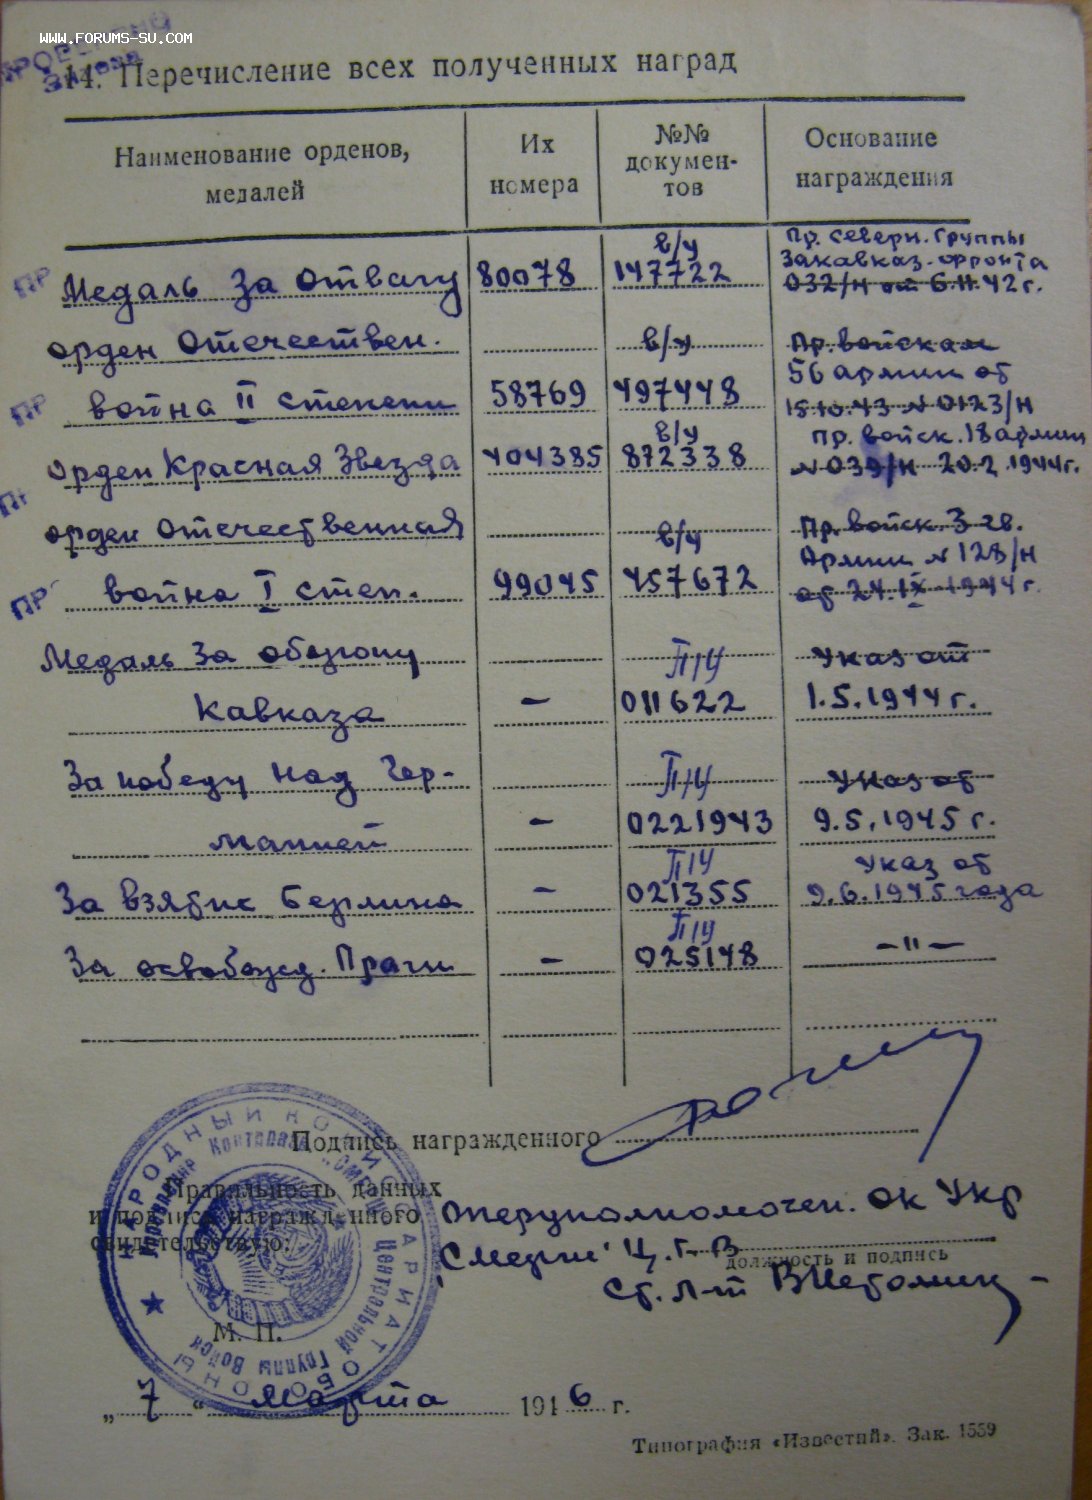 WWW.FORUMS-SU.COM
14. Перечисление всех полученных наград
Наименование орденов, медалей
Их номера
№№ докумен-тов
Основание награждения
Медаль За отвагу 80078 в/у 147722 Пр. Северн. Группы Закавказ. фронта 032/н от 6.11.42 г.
орден Отечествен. война II степени 58769 в/у 497448 Пр. войскам 56 армии от 15.10.43 № 0123/н
Орден Красная Звезда 404385 в/у 872338 Пр. войск. 18 армии № 039/н 20.2.1944г.
орден Отечественная война I степ. 99045 в/у 457672 Пр. войск. 3 гв. Армии № 128/н от 24.IX 1944 г.
Медаль За оборону Кавказа – П/У 011622 Указ от 1.5.1944 г.
За победу над Германией – П/У 0221943 Указ от 9.5.1945 г.
За взятие Берлина – П/У 021355 Указ от 9.6.1945 года
За освобожд. Праги – П/У 025148 –"–
Подпись награжденного
Правильность данных
и подписи награжденного
свидетельствую:
Оперуполномочен. ОК Укр
"Смерш" Ц.Г.В
должность и подпись
Ст. л-т
М. П.
НАРОДНЫЙ КОМИССАРИАТ ОБОРОНЫ
Управление Контрразведки Центральной Группы Войск
„7“ Марта 1946 г.
Типография «Известий». Зак. 1559